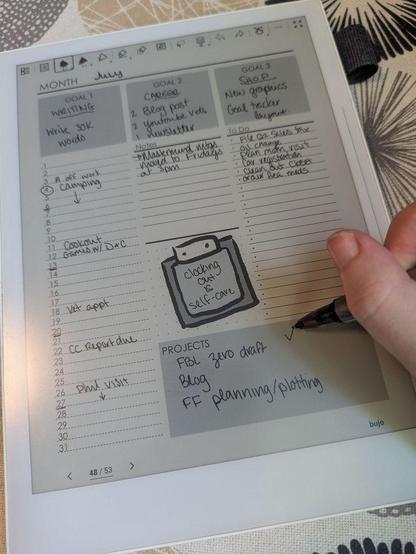 MONTH July
GOAL 1
WRITING
Write 30K
words
GOAL 2
CAREER
2 Blog post
2 Youtube vids
1 newsletter
GOAL 3
SHOP
New graphics
Goal tracker
layout
Notes
Mastermind mtgs
moved to Fridays
at 3pm
To Do
File Q2 sales tax
oil change
Plan mom visit
Car registration
Clean out closet
order Bea meds
1
2
3 A off work
4 Camping
5
6
7
8
9
10
11 Cookout
12 Games w/ D+C
13
14
15
16
17 Vet appt
18
19
20
21
22 CC Report due
23
24
25
26 Phil visit
27
28
29
30
31
clocking
out
is
self-care
PROJECTS
FBL zero draft
Blog
FF planning/plotting
bujo
48 / 53